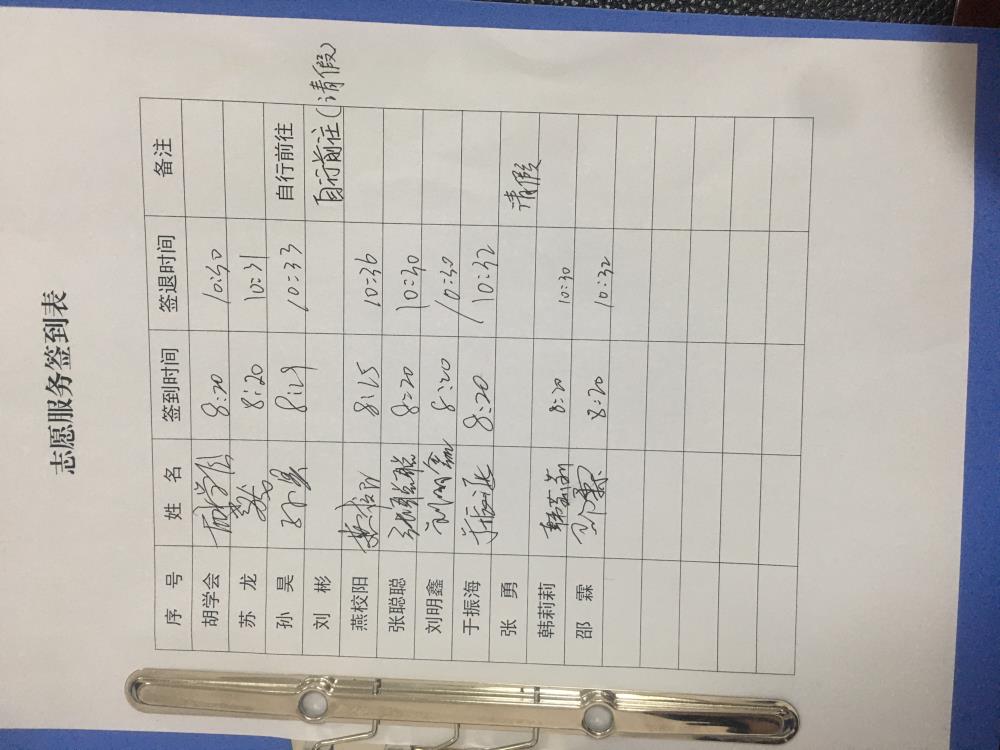 志愿服务签到表
序 号 姓 名 签到时间 签退时间 备注
胡学会 胡学会 8:20 10:30
苏 龙 苏龙 8:20 10:31
孙 昊 孙昊 8:29 10:33 自行前往
刘 彬 自行前往(请假)
燕校阳 燕校阳 8:25 10:36
张聪聪 张聪聪 8:20 10:30
刘明鑫 刘明鑫 8:20 10:30
于振海 于振海 8:20 10:32
张 勇 请假
韩莉莉 韩莉莉 8:20 10:30
邵 霖 邵霖 8:20 10:32